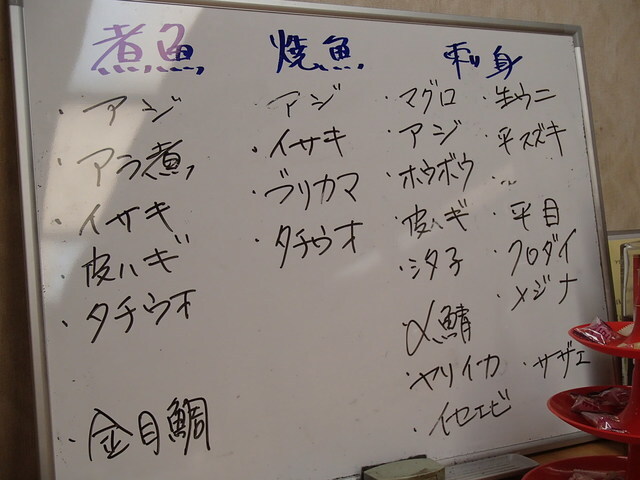 煮魚
・アジ
・アラ煮
・イサキ
・皮ハギ
・タチウオ
・金目鯛
焼魚
・アジ
・イサキ
・ブリカマ
・タチウオ
刺身
・マグロ
・アジ
・ホウボウ
・皮ハギ
・シタ子
〆鯖
・ヤリイカ
・イセエビ
・生ウニ
・平スズキ
・平目
・クロダイ
・メジナ
・サザエ